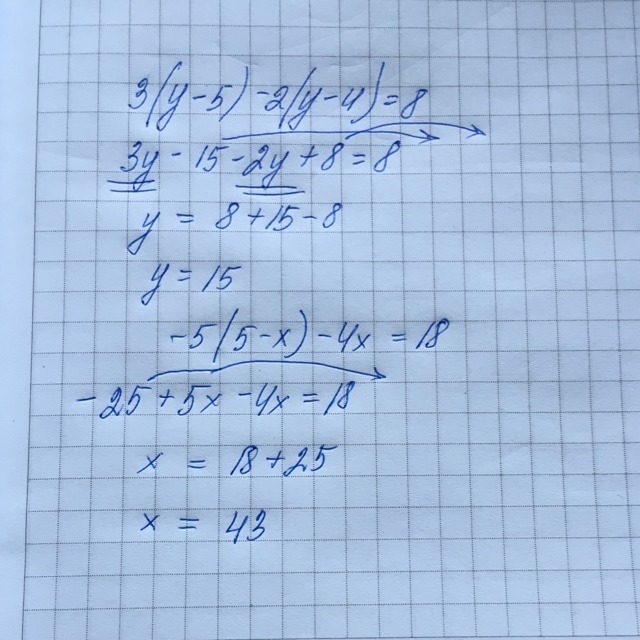 3(y-5)-2(y-4)=8
3y-15-2y+8=8
y = 8+15-8
y = 15
-5(5-x)-4x = 18
-25+5x-4x=18
x = 18+25
x = 43